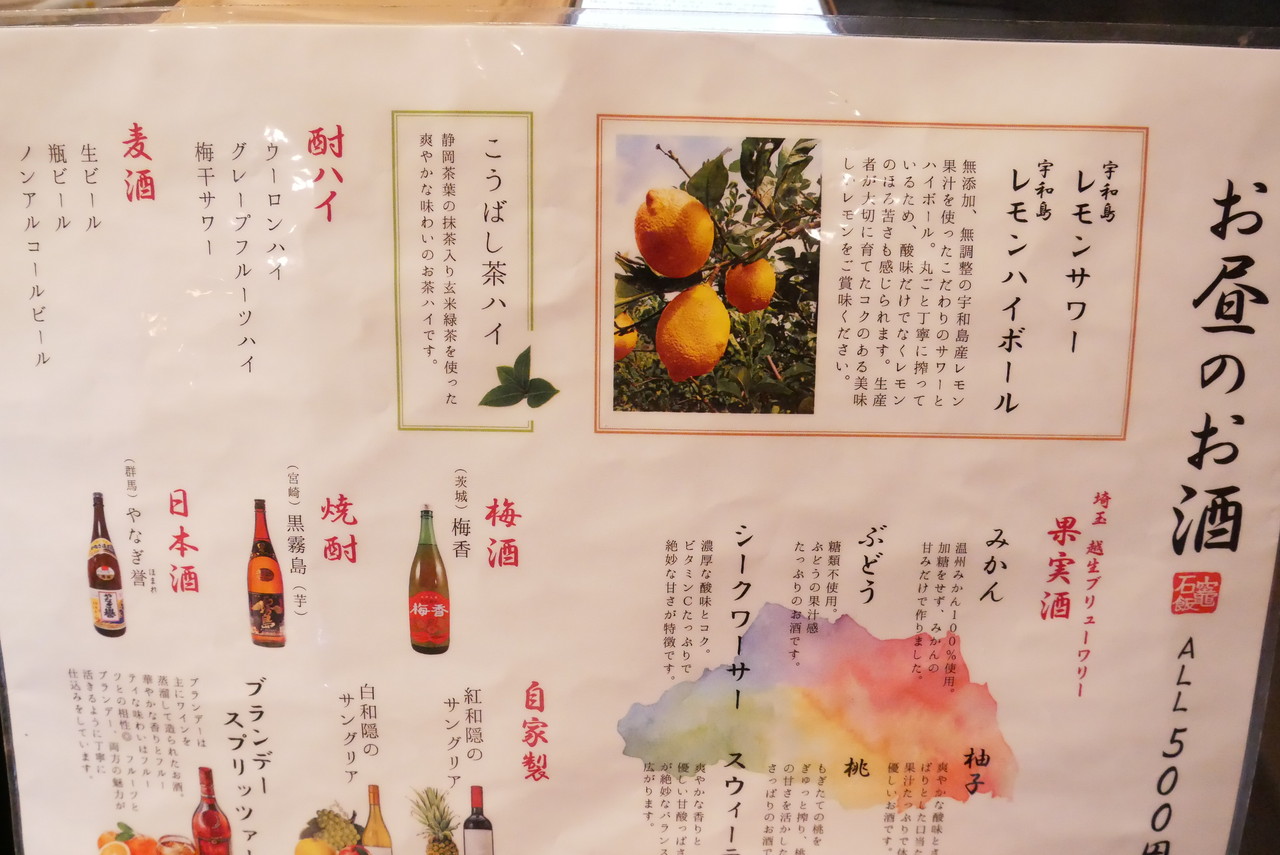 お昼のお酒
石竈飯
ALL 500円
宇和島
レモンサワー
宇和島
レモンハイボール
無添加、無調整の宇和島産レモン
果汁を使ったこだわりのサワーと
ハイボール。丸ごと丁寧に搾って
いるため、酸味だけでなくレモン
のほろ苦さも感じられます。生産
者が大切に育てたコクのある美味
しいレモンをご賞味ください。
こうばし茶ハイ
静岡茶葉の抹茶入り玄米緑茶を使った
爽やかな味わいのお茶ハイです。
酎ハイ
ウーロンハイ
グレープフルーツハイ
梅干サワー
麦酒
生ビール
瓶ビール
ノンアルコールビール
埼玉 越生ブリューワリー
果実酒
みかん
温州みかん100%使用。
加糖をせず、みかんの
甘みだけで作りました。
ぶどう
糖類不使用。
ぶどうの果汁感
たっぷりのお酒です。
シークワーサー
濃厚な酸味とコク。
ビタミンCたっぷりで
絶妙な甘さが特徴です。
柚子
爽やかな酸味とさ
ぱりとした口当た
果汁たっぷりで体
優しいお酒です。
桃
もぎたての桃を
ぎゅっと搾り、桃
の甘さを活かした
さっぱりのお酒で
スウィーニ
爽やかな香りと
優しい甘酸っぱさ
が絶妙なバランス
広がります。
梅酒
(茨城)梅香
梅香
焼酎
(宮崎)黒霧島(芋)
日本酒
(群馬)やなぎ誉
ほまれ
自家製
紅和隠の
サングリア
白和隠の
サングリア
ブランデー
スプリッツァー
ブランデーは
主にワインを
蒸溜して造られたお酒。
華やかな香りとフルー
ティな味わいはフルー
ツとの相性◎ フルーツと
ブランデー、両方の魅力が
活きるように丁寧に
仕込みをしています。